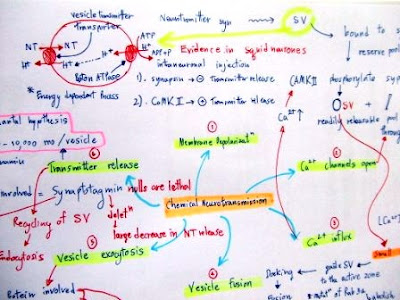 vesicle transmitter
transporter
Neurotransmitter syn
SV
NT
NT
H+
H+
ATP
H+
ADP+P
H+
Proton ATPase
* Energy dependent Process
Evidence in Squid neurones
intraneuronal injection
1). synapsin → ⊖ Transmitter release
2) CaMK II → ⊕ Transmitter release
bound to
reserve
CAMKII
phosphorylate
Ca2+
SV +
readily releasable pool
through
hypothesis
- 10,000 mo/vesicle
⑥
Transmitter release
①
Membrane Depolarizatn
②
Ca2+ channels open
involved = Synaptotagmin nulls are lethal
Chemical Neurotransmission
Recycling of SV
deletn
large decrease in NT release
Endocytosis
⑤
Vesicle exocytosis
③
Ca2+ influx
④
Vesicle Fusion
small
Docking
SV
to the active zone
Fusion
Protein involved